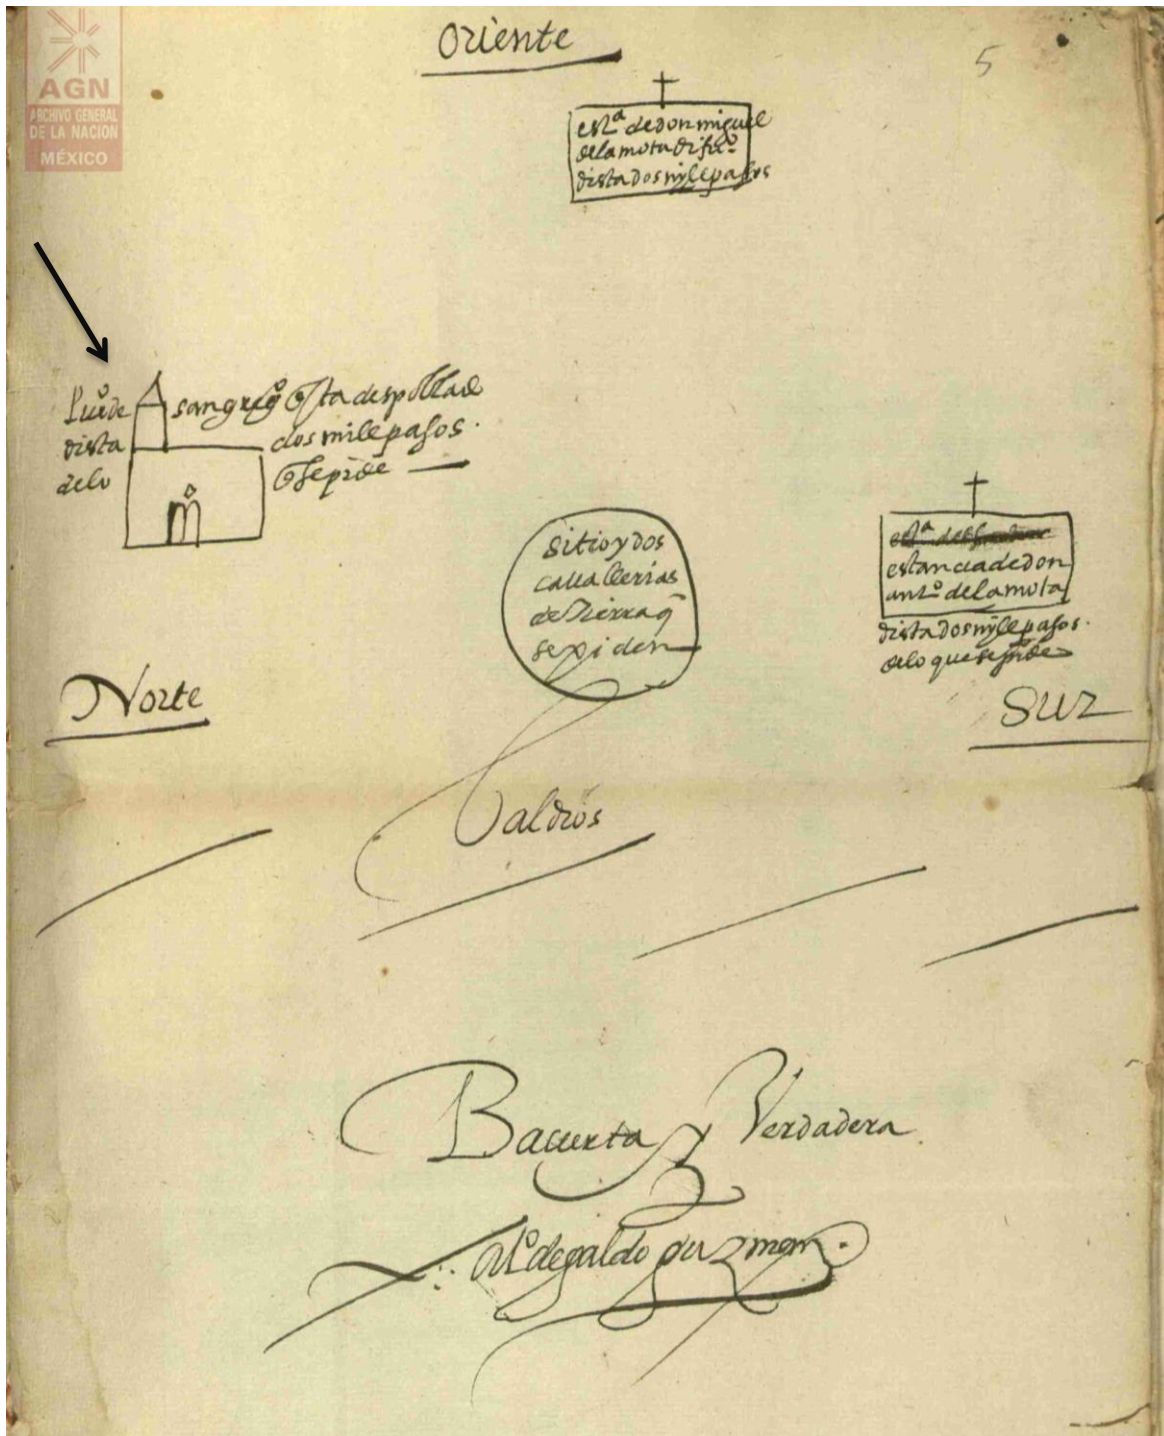 AGN
ARCHIVO GENERAL
DE LA NACIÓN
MÉXICO
Oriente
5
estª de don miguel
de la mota difuº
dista dos mill e pasos
Puº de san gregº esta despoblado
dista dos mill e pasos.
de lo q se pide
sitio y dos
cavallerias
de tierra q̄
se piden
estª de
estancia de don
antº de la mota
dista dos mill e pasos.
de lo que se pide
Norte
Sur
Valdios
Ba cierta y Verdadera
de galdo guzman.